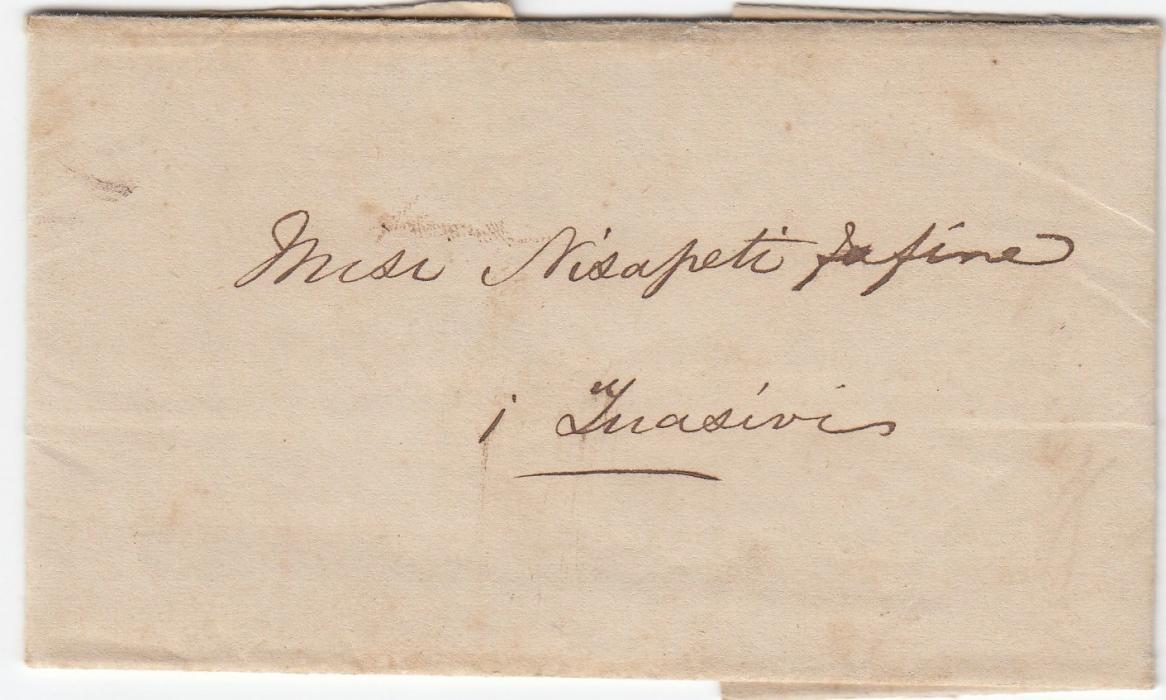 Misi Nisapeti fafine
i Tuasivi